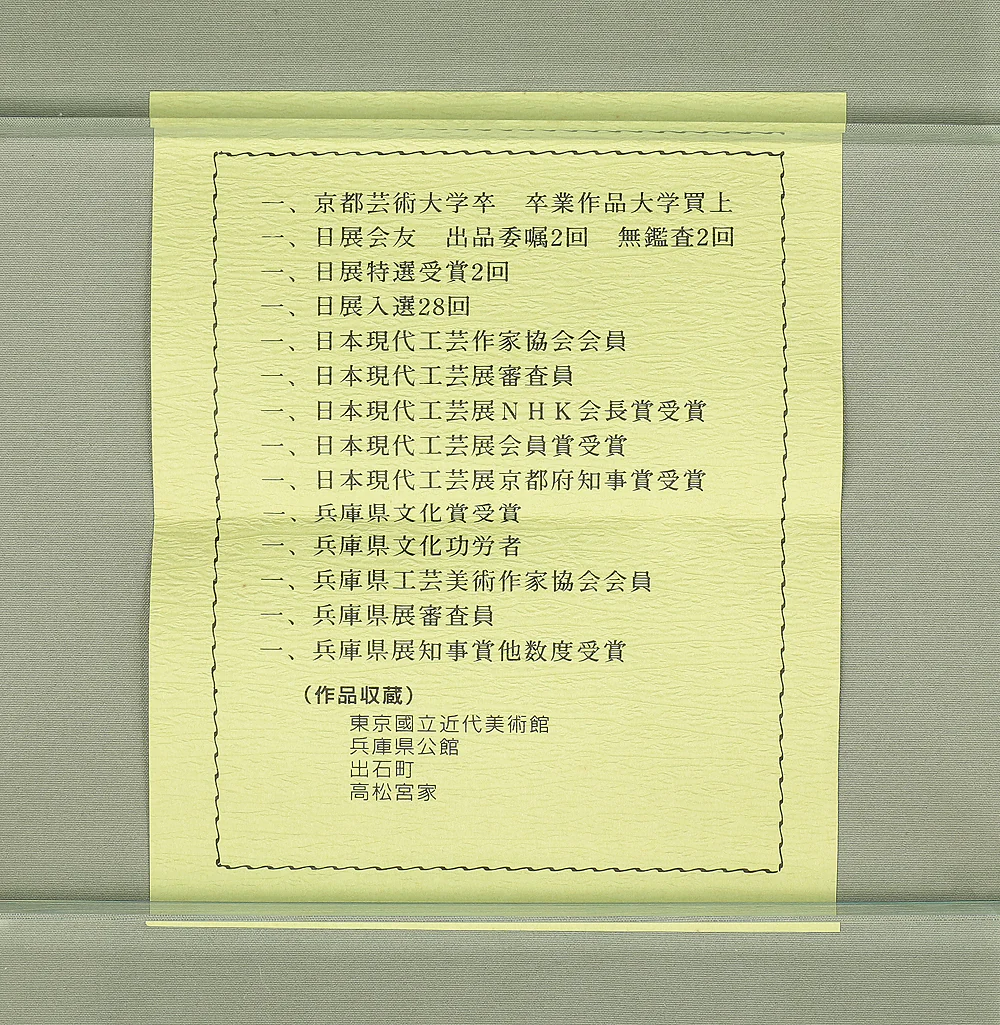 一、京都芸術大学卒　卒業作品大学買上
一、日展会友　出品委嘱2回　無鑑査2回
一、日展特選受賞2回
一、日展入選28回
一、日本現代工芸作家協会会員
一、日本現代工芸展審査員
一、日本現代工芸展ＮＨＫ会長賞受賞
一、日本現代工芸展会員賞受賞
一、日本現代工芸展京都府知事賞受賞
一、兵庫県文化賞受賞
一、兵庫県文化功労者
一、兵庫県工芸美術作家協会会員
一、兵庫県展審査員
一、兵庫県展知事賞他数度受賞
（作品収蔵）
東京國立近代美術館
兵庫県公館
出石町
高松宮家